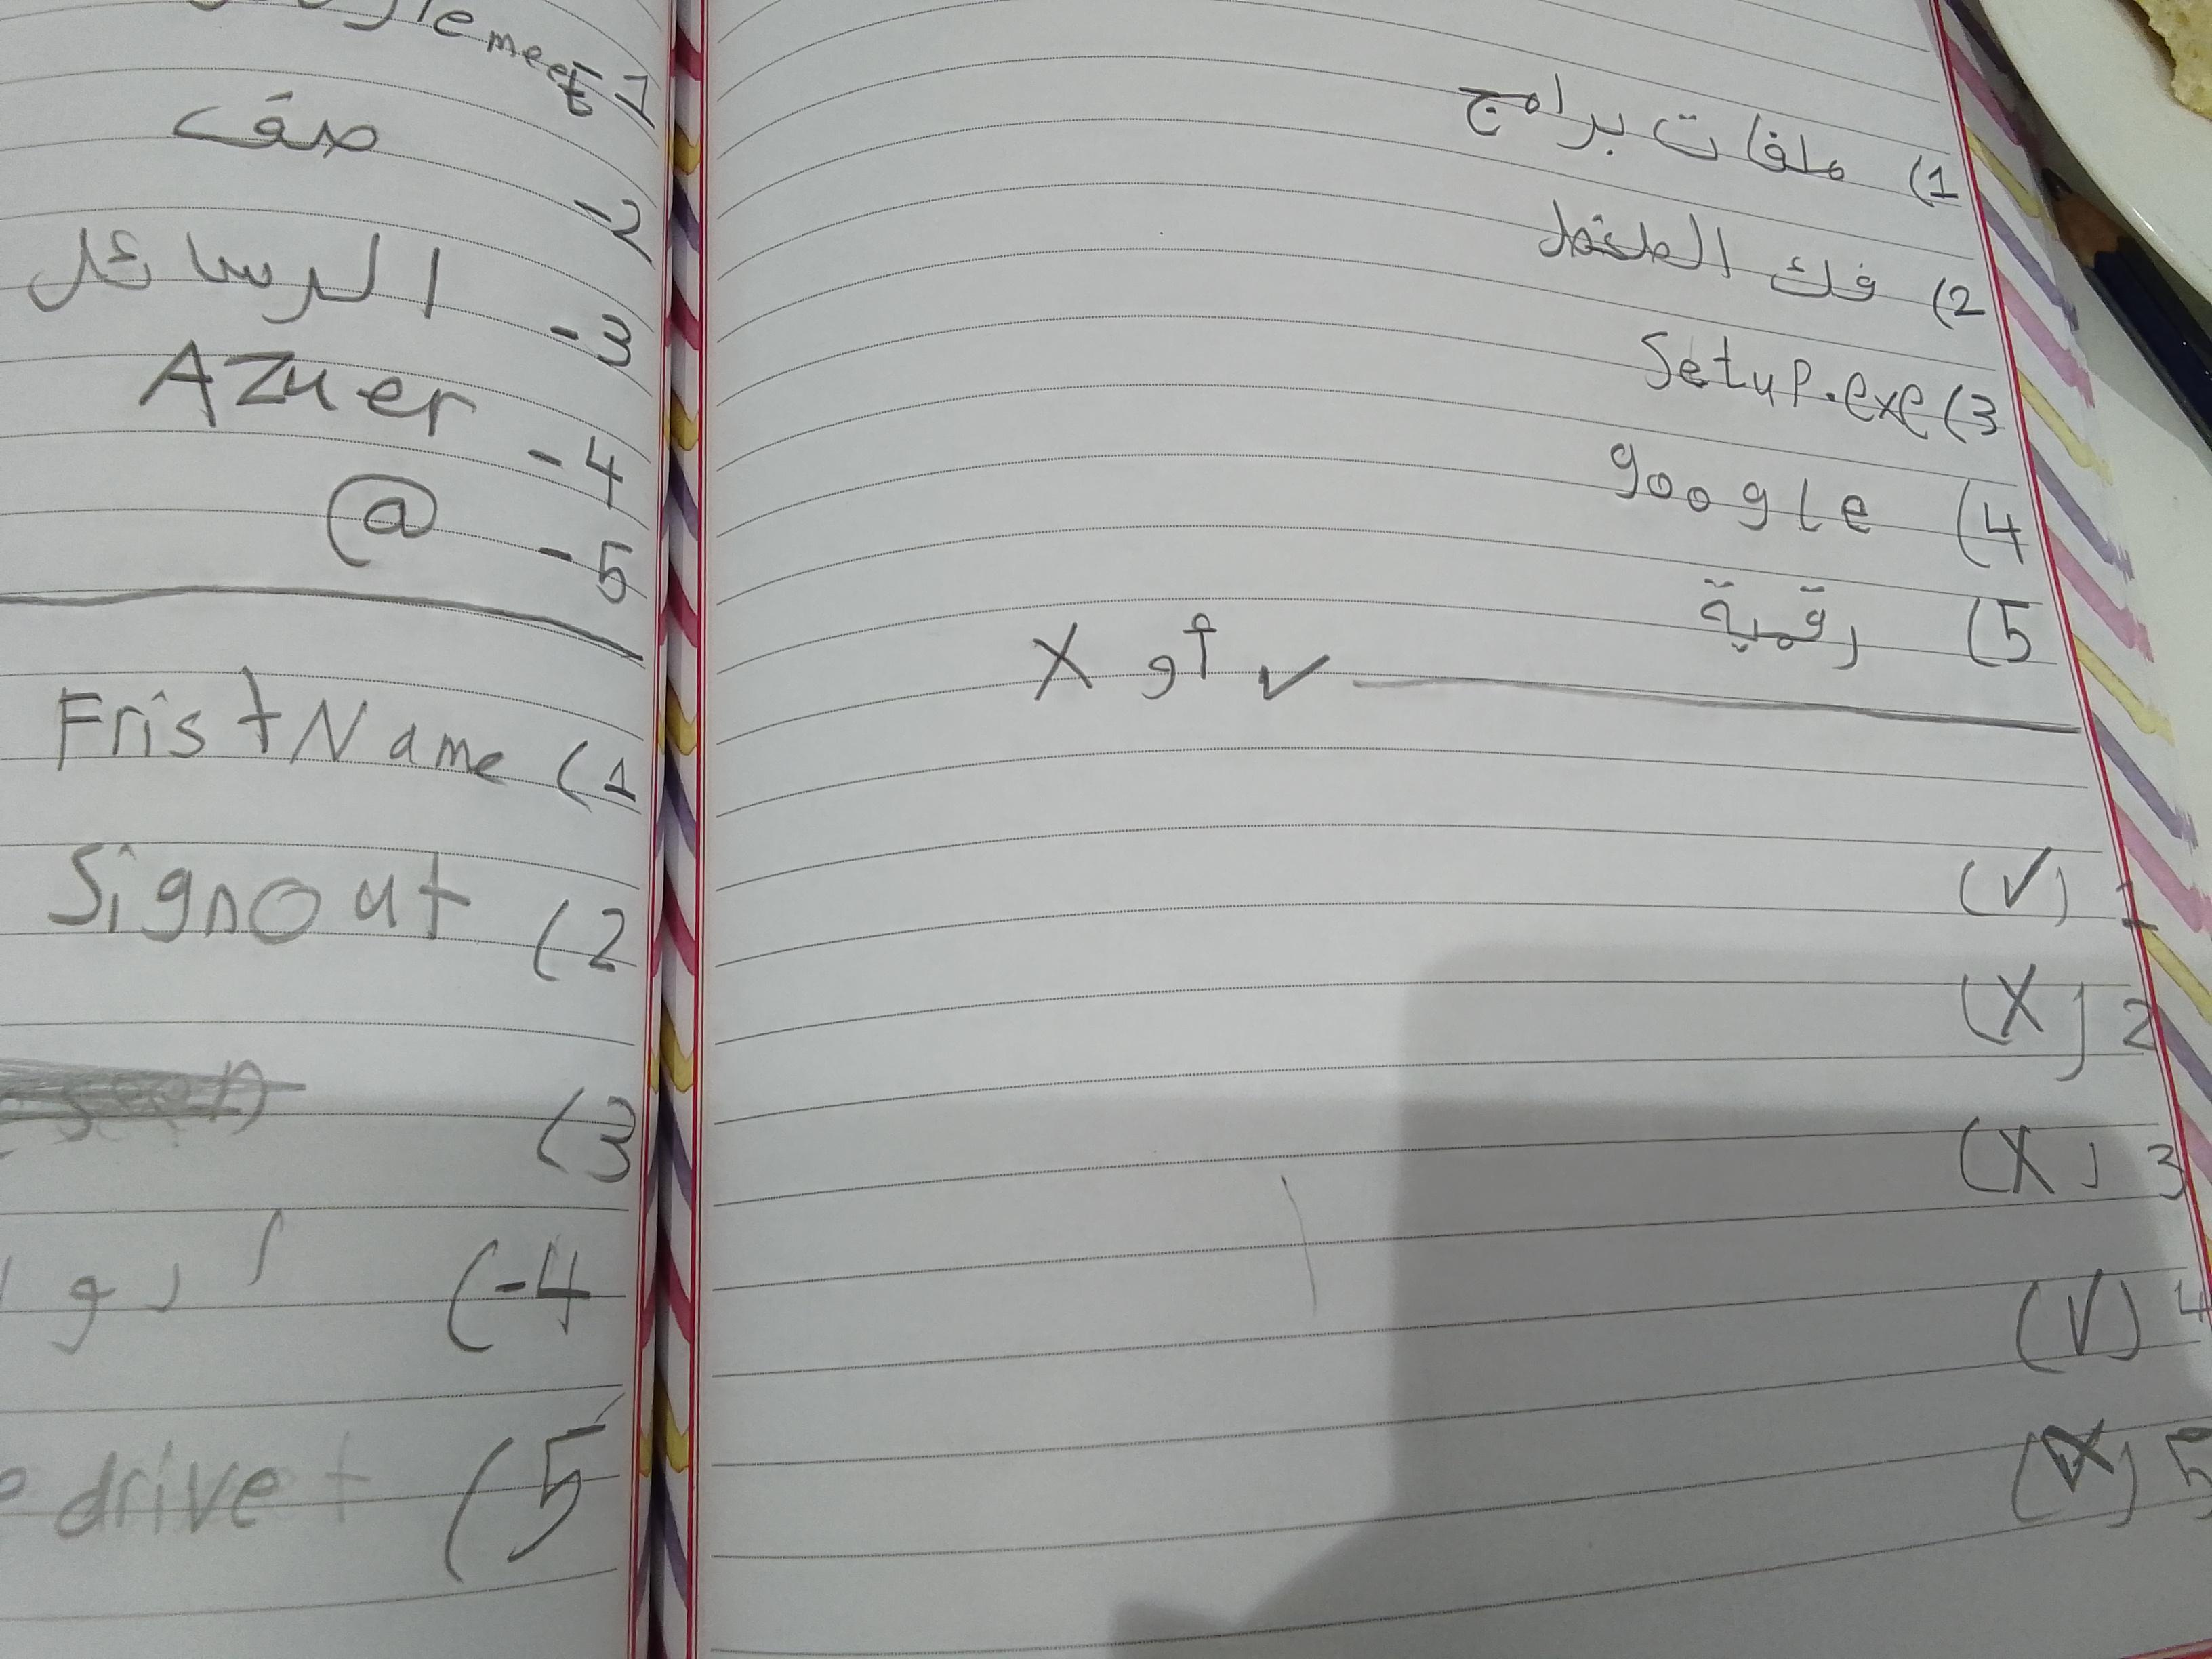 1) ملفات برامج
2) فك الضغط
3) Setup.exe
4) google
5) رقمية
✓ أو X
1 (✓)
2 (X)
3 (X)
4 (✓)
5 (X)
1- meet
2- صف
3- الرسائل
4- AZuer
5- @
1) Frist Name
2) Sign out
3)
4-)
5) drive